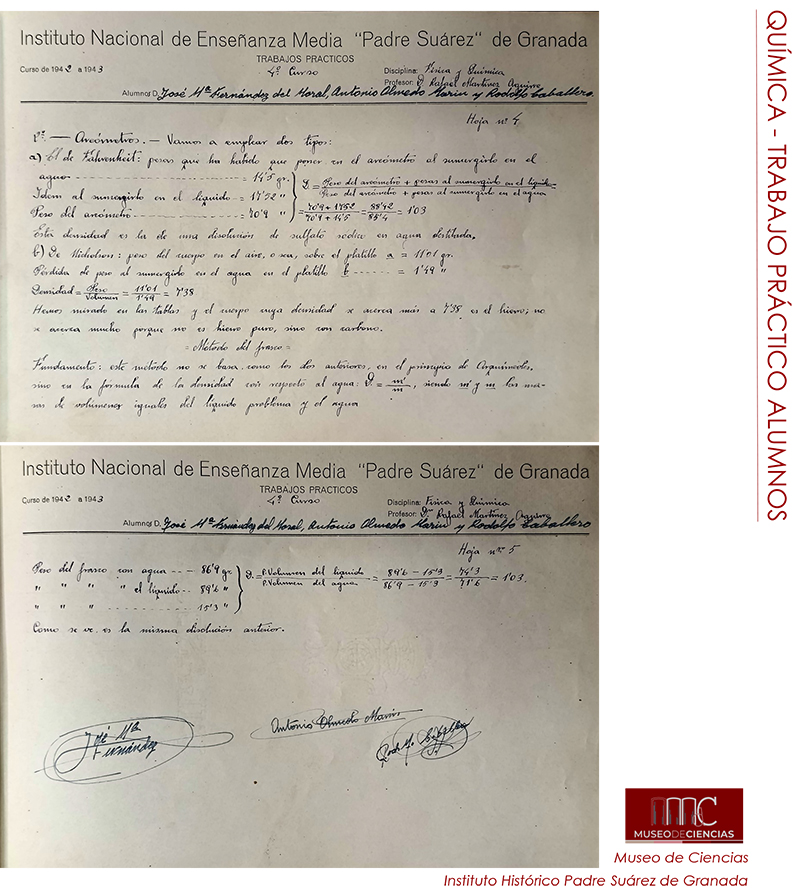 Instituto Nacional de Enseñanza Media "Padre Suárez" de Granada
TRABAJOS PRACTICOS
Curso de 1942 a 1943
4º Curso
Disciplina: Física y Química
Profesor: D. Rafael Martínez Aguirre
Alumno: D. José Mª Fernández del Moral, Antonio Olmedo Marín y Rodolfo Caballero.
Hoja nº 4
2º.— Areómetros.— Vamos a emplear dos tipos:
a) El de Fahrenheit: pesas que ha habido que poner en el areómetro al sumergirlo en el
agua = 14'5 gr.
Idem al sumergirlo en el líquido = 17'52 "
Peso del areómetro = 70'9 "
D. = Peso del areómetro + pesas al sumergirlo en el líquido / Peso del areómetro + pesas al sumergirlo en el agua
= 70'9 + 17'52 / 70'9 + 14'5 = 88'42 / 85'4 = 1'03
Esta densidad es la de una disolución de sulfato sódico en agua destilada.
b) De Nicholson: peso del cuerpo en el aire, o sea, sobre el platillo a = 11'01 gr.
Pérdida de peso al sumergirlo en el agua en el platillo b = 1'49 "
Densidad = Peso / Volumen = 11'01 / 1'49 = 7'38
Hemos mirado en las tablas y el cuerpo cuya densidad se acerca más a 7'38 es el hierro; no
se acerca mucho porque no es hierro puro, sino con carbono.
= Método del frasco =
Fundamento: este método no se basa, como los dos anteriores, en el principio de Arquímedes,
sino en la fórmula de la densidad con respecto al agua: D. = m' / m, siendo m' y m las ma-
sas de volúmenes iguales del líquido problema y el agua
Instituto Nacional de Enseñanza Media "Padre Suárez" de Granada
TRABAJOS PRACTICOS
Curso de 1942 a 1943
4º Curso
Disciplina: Física y Química
Profesor: D. Rafael Martínez Aguirre
Alumno: D. José Mª Fernández del Moral, Antonio Olmedo Marín y Rodolfo Caballero
Hoja nº 5
Peso del frasco con agua -- 86'9 gr.
" " " " el líquido -- 89'6 "
" " " 15'3 "
D. = P. Volumen del líquido / P. Volumen del agua = 89'6 - 15'3 / 86'9 - 15'3 = 74'3 / 71'6 = 1'03.
Como se ve, es la misma disolución anterior.
José Mª
Fernández
Antonio Olmedo Marín
QUÍMICA - TRABAJO PRÁCTICO ALUMNOS
MUSEO DE CIENCIAS
Museo de Ciencias
Instituto Histórico Padre Suárez de Granada